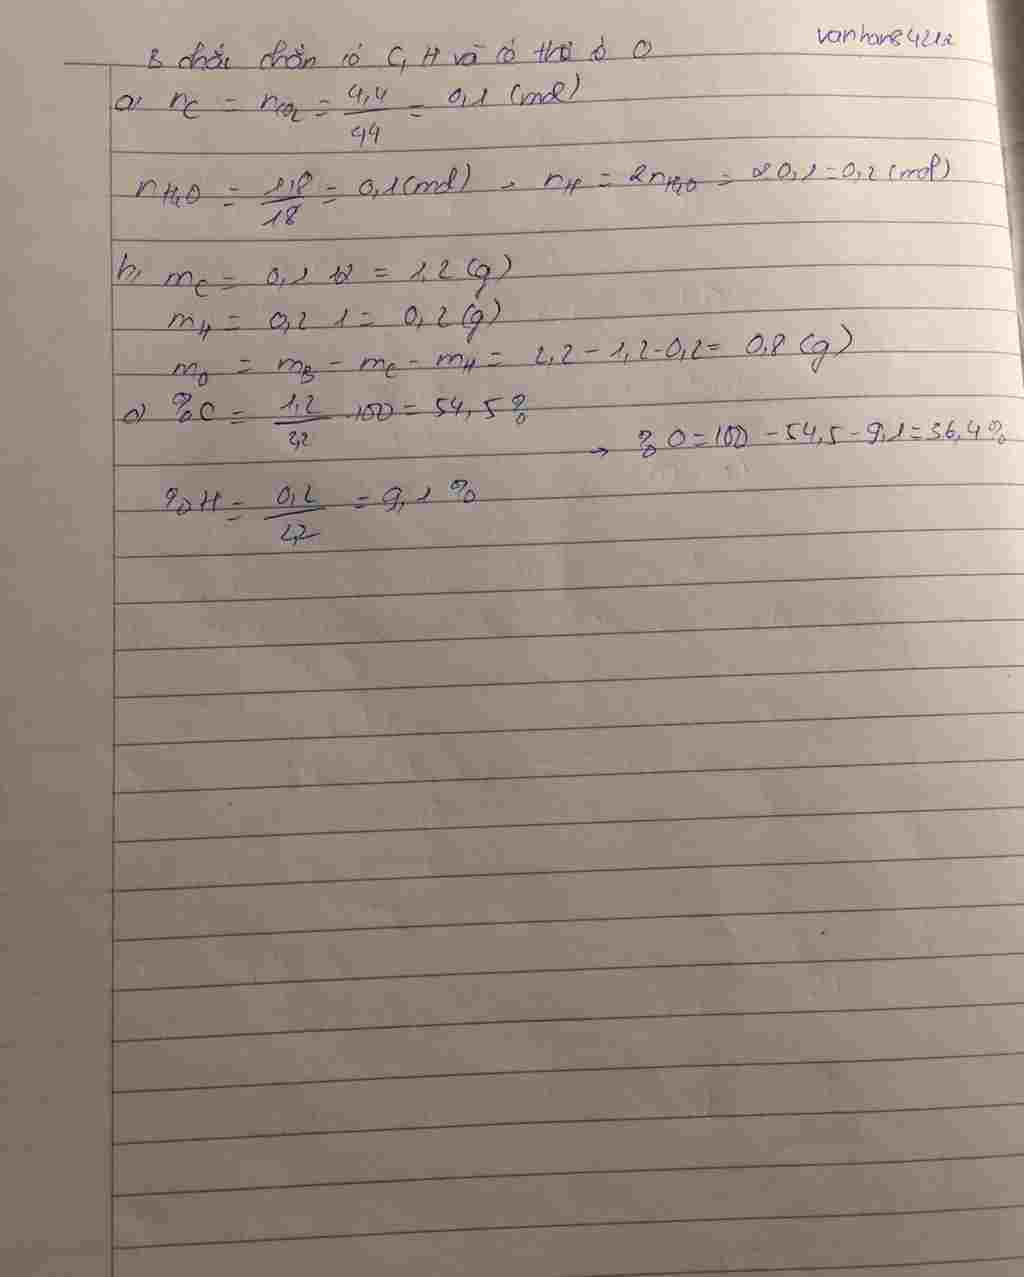 vanhang421a
B chắc chắn có C, H và có thể có O
a) nC = nCO2 = 4,4/44 = 0,1 (mol)
nH2O = 1,8/18 = 0,1 (mol) → nH = 2nH2O = 2 0,1 = 0,2 (mol)
b, mC = 0,1 12 = 1,2 (g)
mH = 0,2 1 = 0,2 (g)
mO = mB - mC - mH = 2,2 - 1,2 - 0,2 = 0,8 (g)
c) %C = 1,2/2,2 .100 = 54,5%
→ %O = 100 - 54,5 - 9,1 = 36,4%
%H = 0,2/2,2 = 9,1%